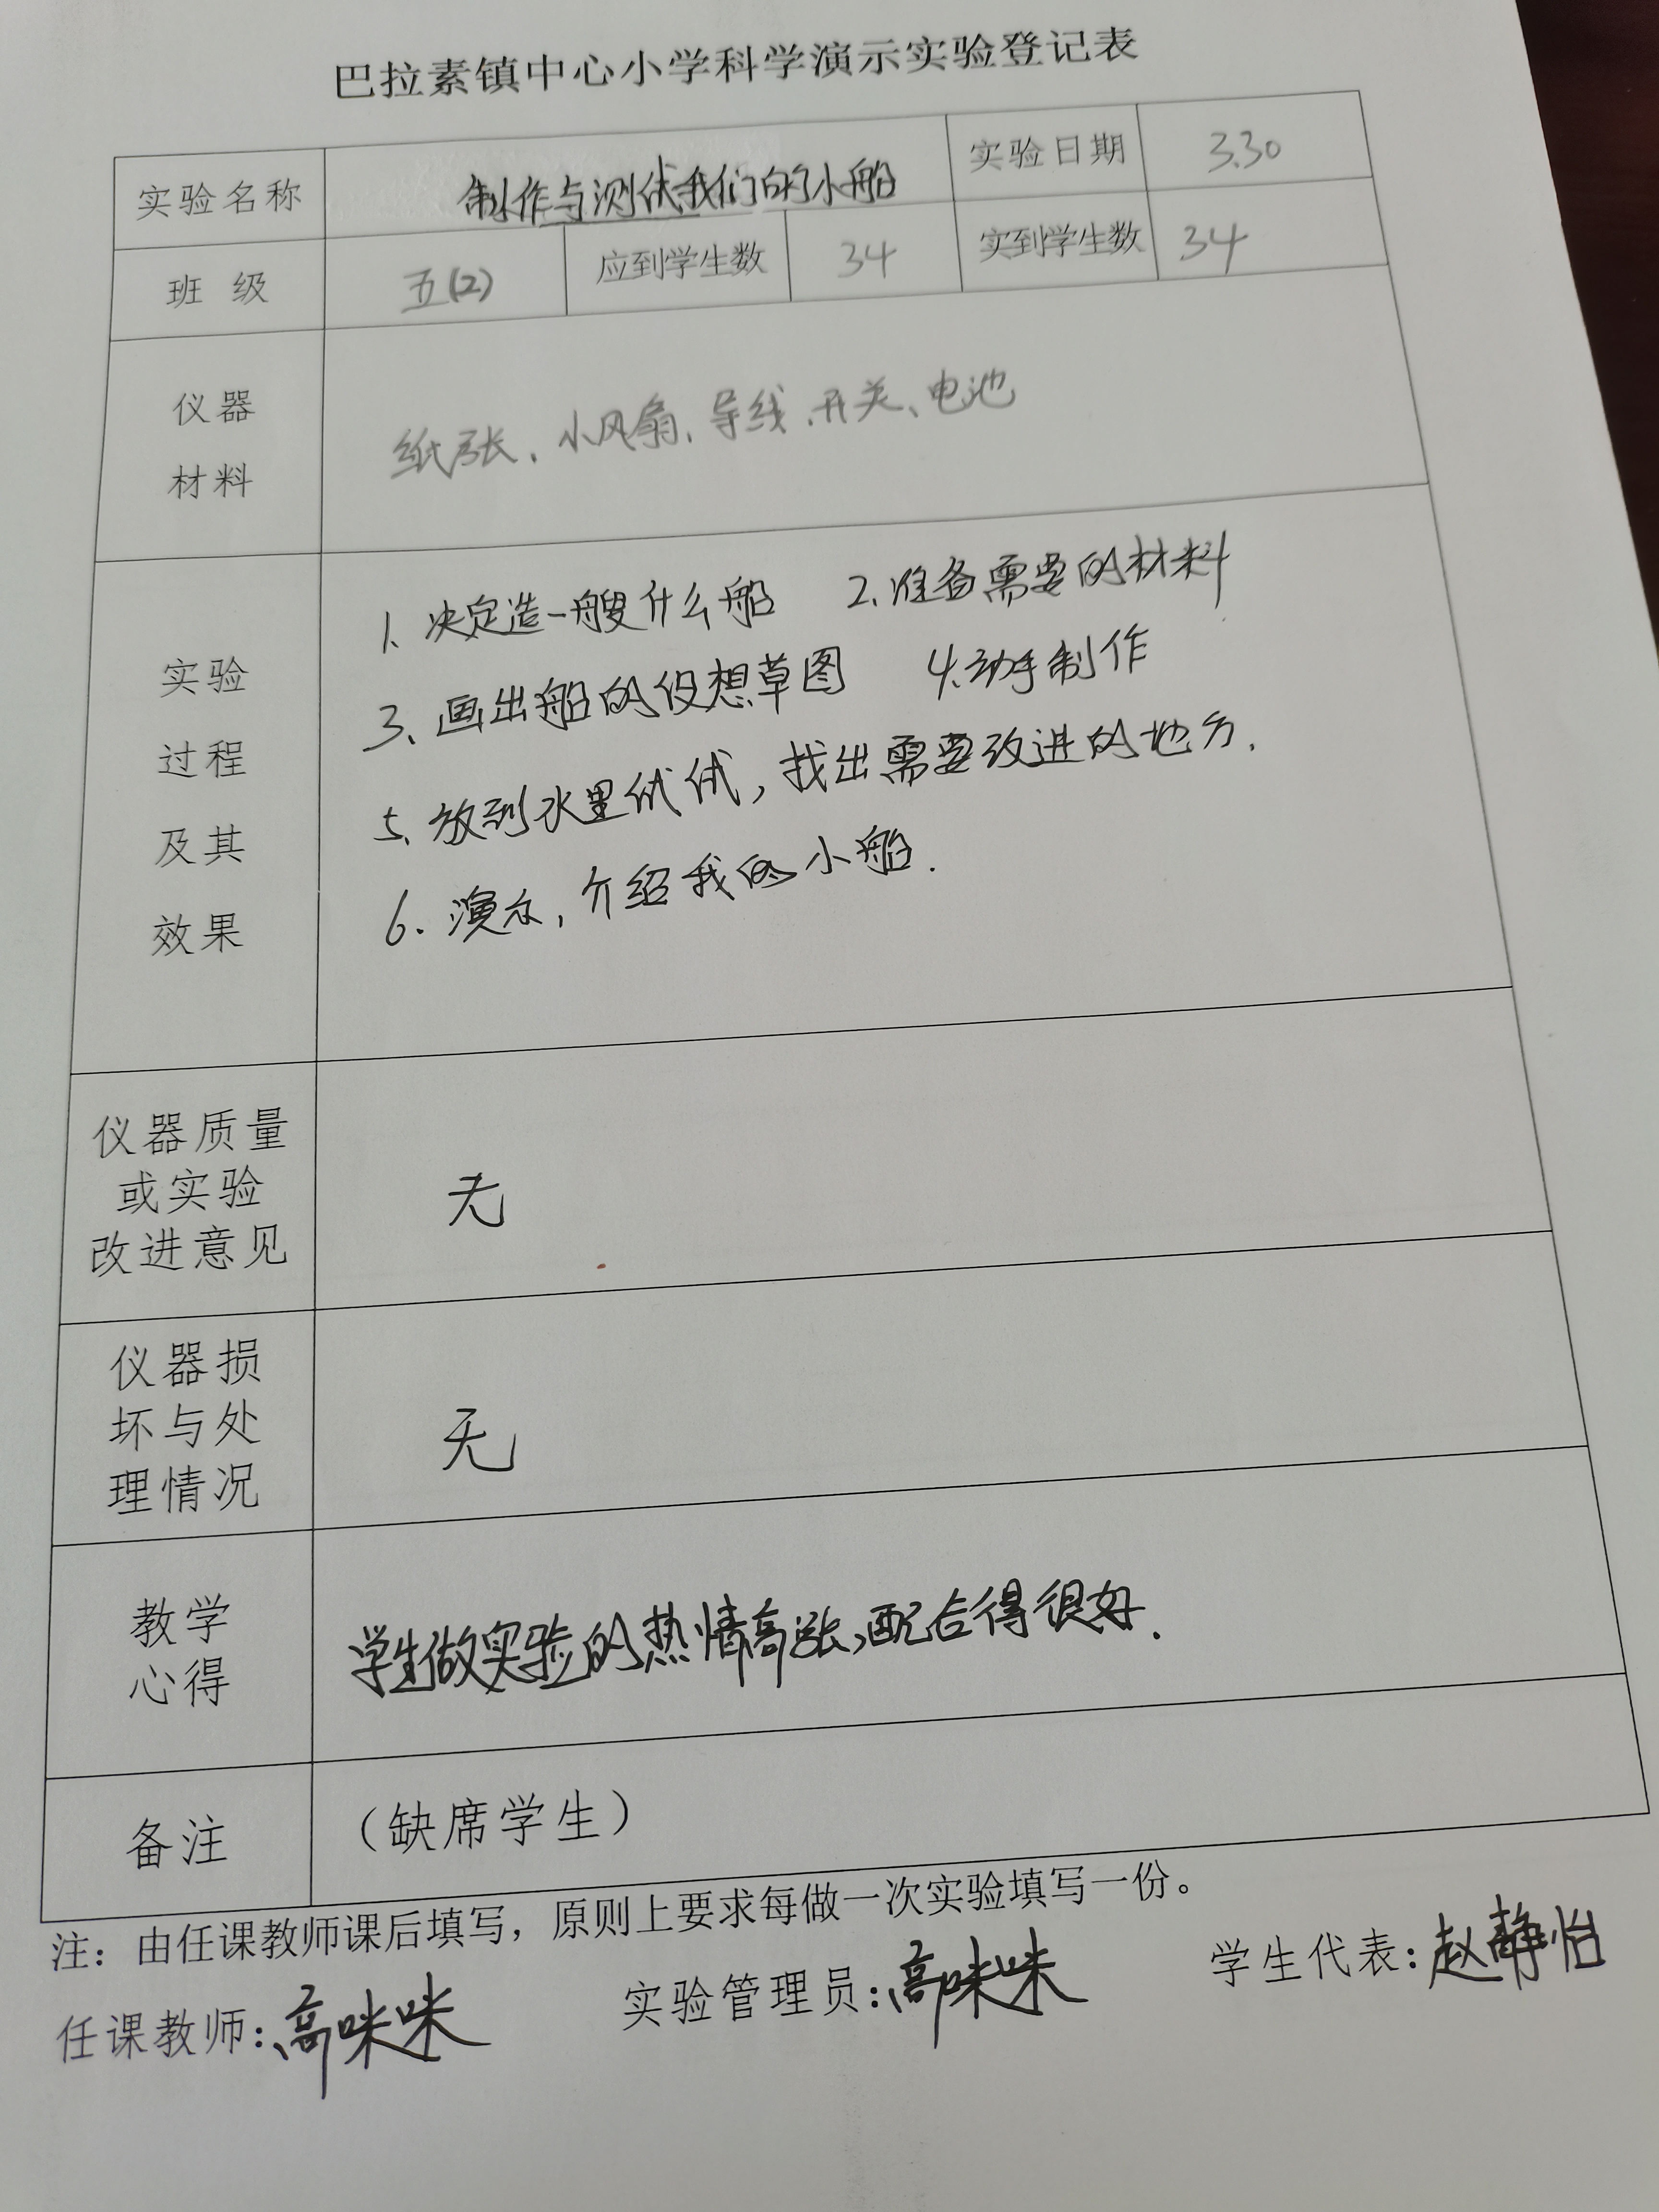 巴拉素镇中心小学科学演示实验登记表
实验名称 制作与测试我们的小船 实验日期 3.30
班 级 五(2) 应到学生数 34 实到学生数 34
仪器
材料
纸张、小风扇、导线、开关、电池
实验
过程
及其
效果
1、决定造一艘什么船 2、准备需要的材料
3、画出船的设想草图 4、动手制作
5、放到水里试试，找出需要改进的地方.
6. 演示，介绍我的小船.
仪器质量
或实验
改进意见
无
仪器损
坏与处
理情况
无
教学
心得
学生做实验的热情高涨，配合得很好.
备注 （缺席学生）
注：由任课教师课后填写，原则上要求每做一次实验填写一份。
任课教师：高咪咪 实验管理员：高咪咪 学生代表：赵静怡